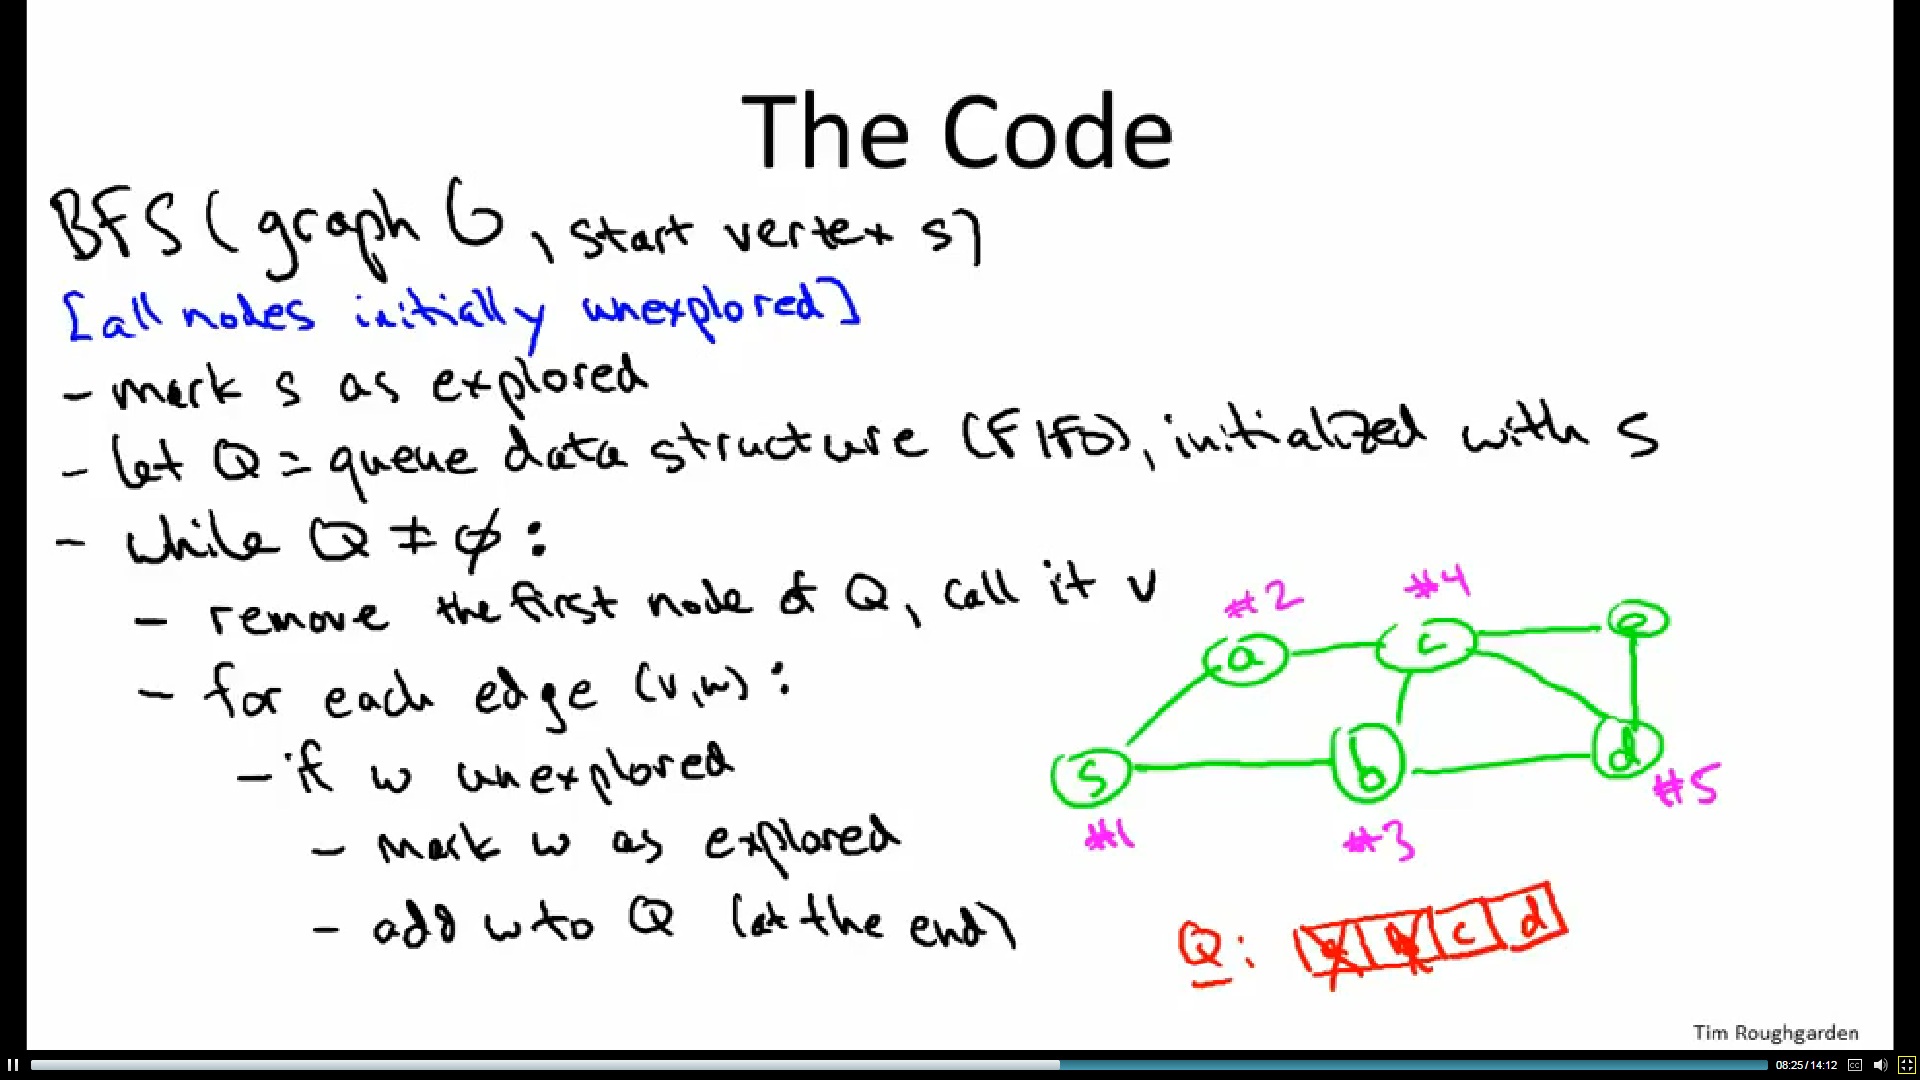 The Code
BFS (graph G, start vertex s)
[all nodes initially unexplored]
- mark s as explored
- let Q = queue data structure (FIFO), initialized with s
- while Q ≠ ∅ :
- remove the first node of Q, call it v
- for each edge (v,w) :
- if w unexplored
- mark w as explored
- add w to Q (at the end)
#2 #4
a c e
s b d
#1 #3 #5
Q: c d
Tim Roughgarden
08:25/14:12 CC